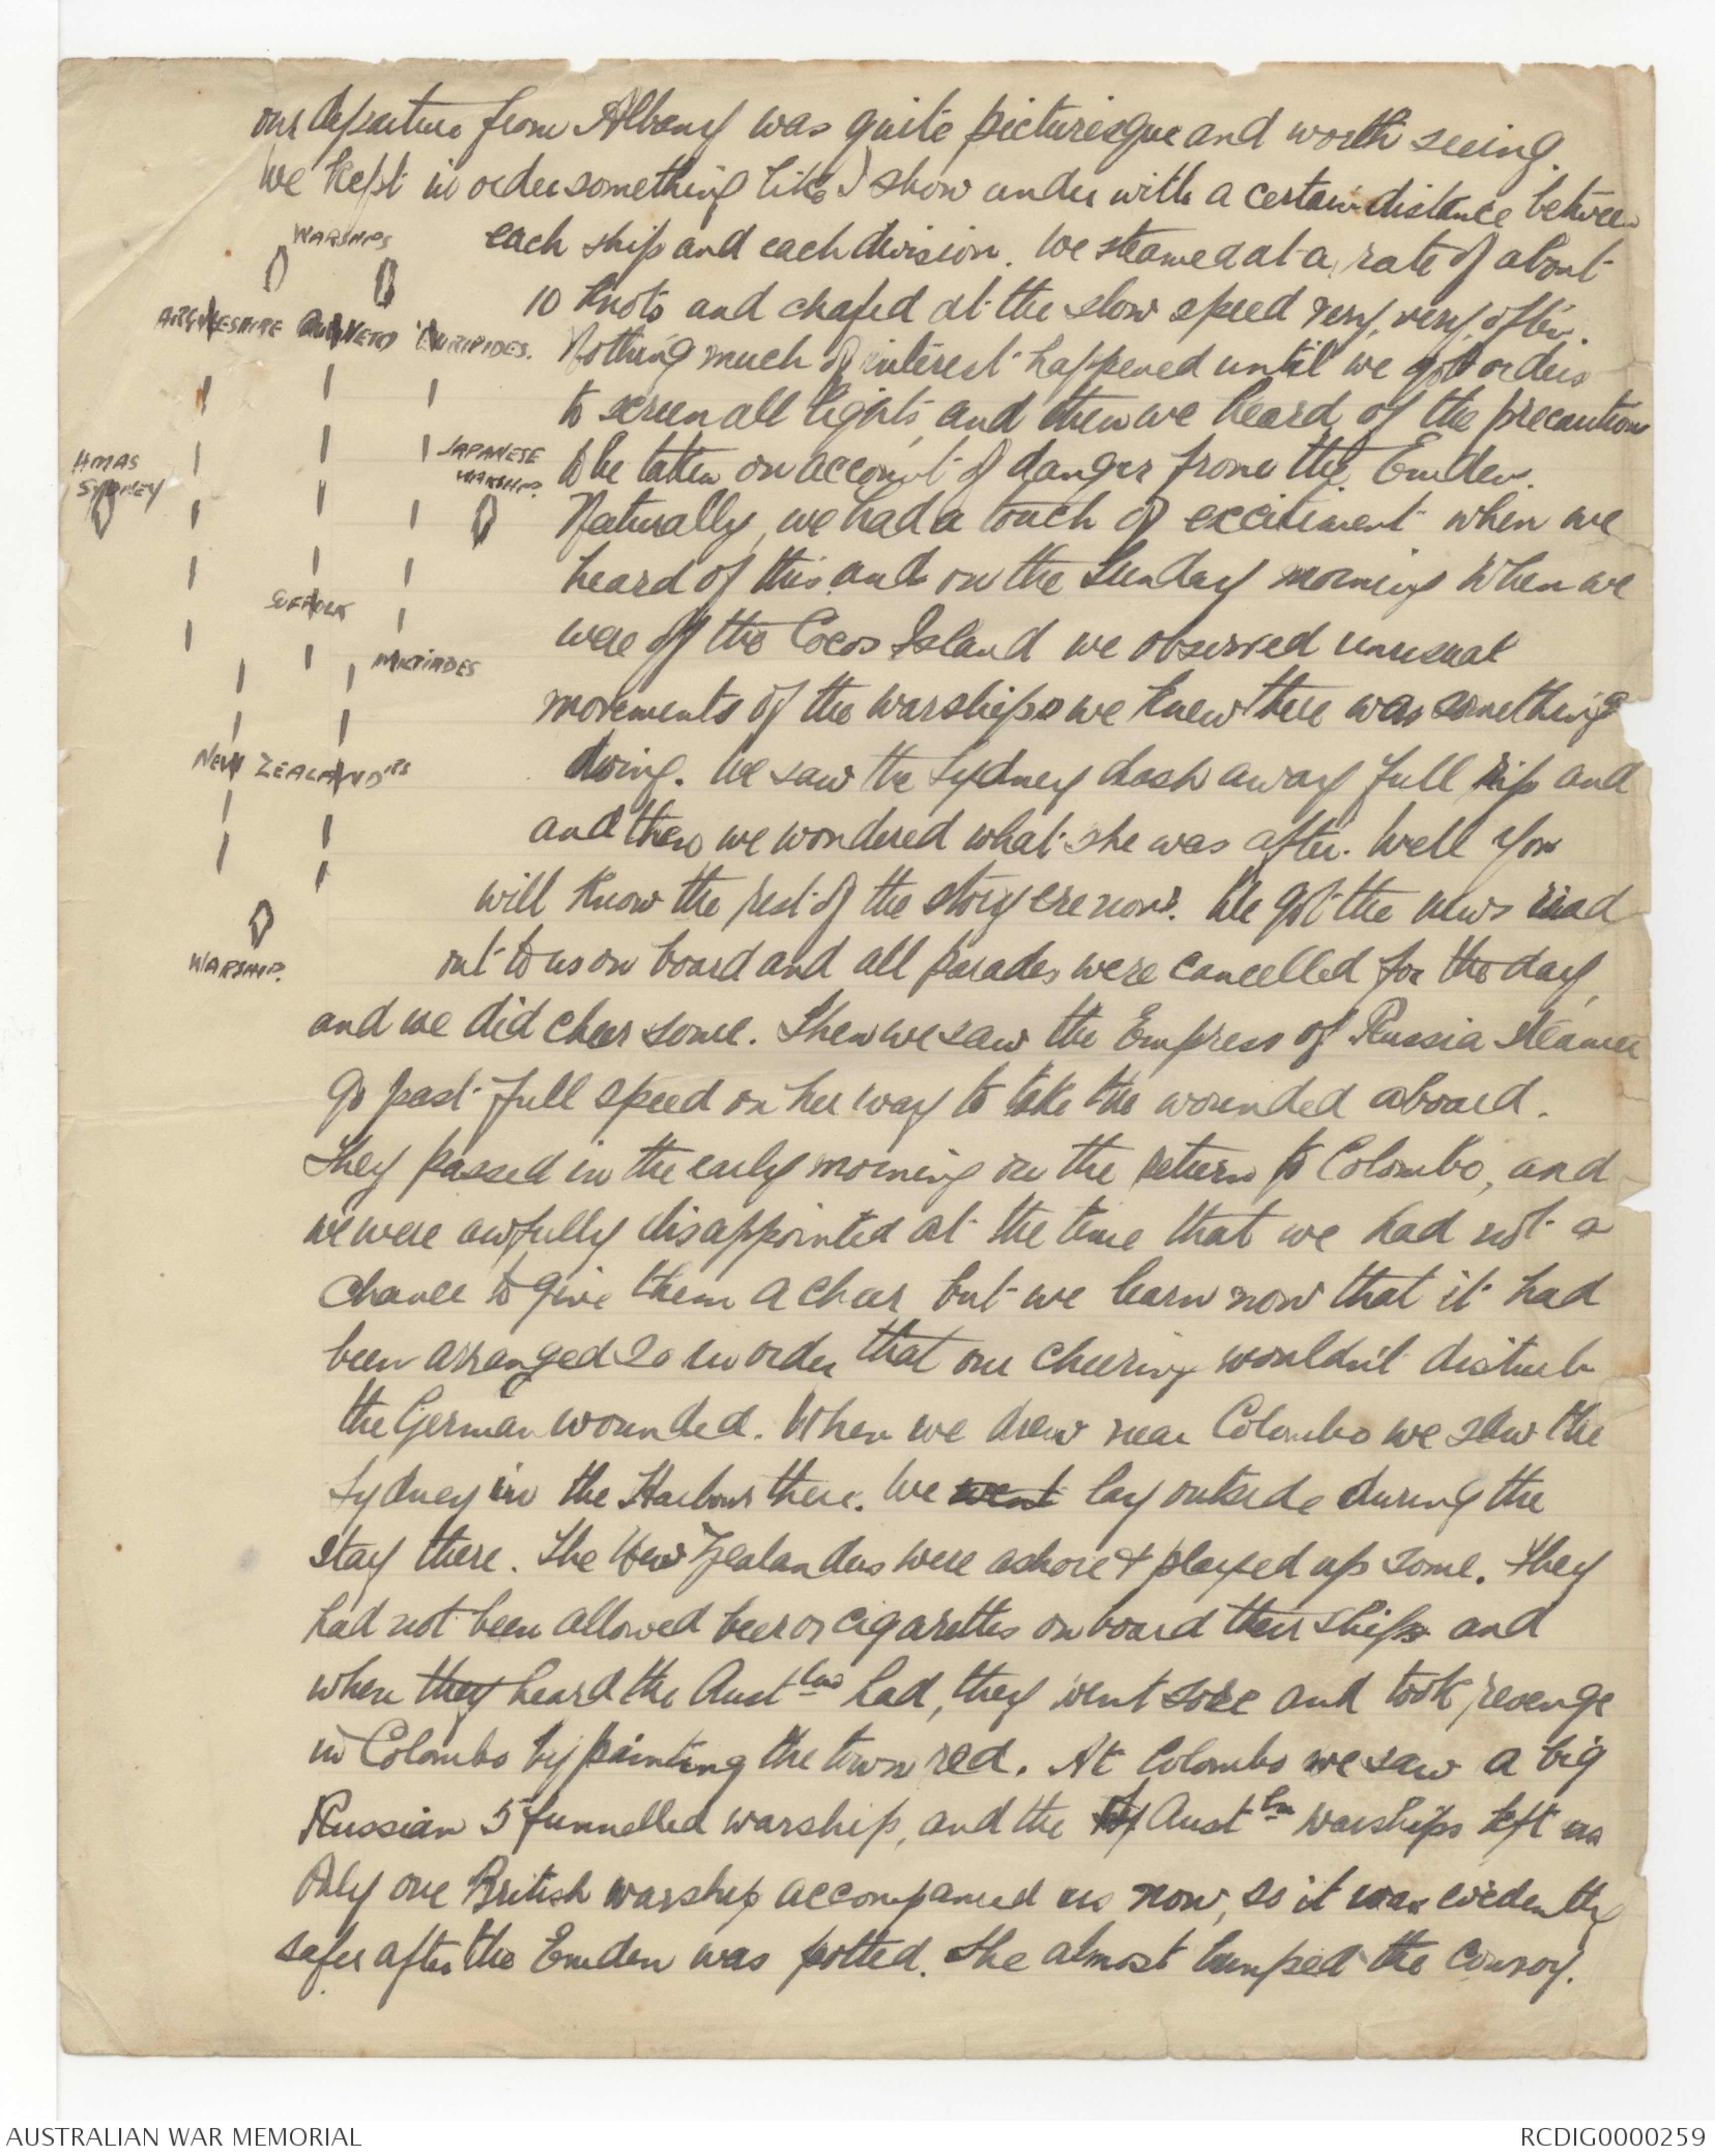 our departure from Albany was quite picturesque and worth seeing.
We kept in order something like I show under with a certain distance between
each ship and each division. We steamed at a rate of about
10 knots and chafed at the slow speed very, very, often.
Nothing much of interest happened until we got orders
to screen all lights, and then we heard of the precautions
to be taken on account of danger from the Emden.
Naturally, we had a touch of excitiment when we
heard of this and on the Sunday morning when we
were off the Cocos Island we observed unusual
movements of the warships we knew there was something
doing. We saw the Sydney dash away full rip and
and then we wondered what she was after. Well you
will know the rest of the story ere now. We got the news read
out to us on board and all parades were cancelled for the day,
and we did cheer some. Then we saw the Empress of Russia steamer
go past full speed on her way to take the wounded aboard.
They passed in the early morning on the return to Colombo, and
we were awfully disappointed at the time that we had not a
chance to give them a cheer but we learn now that it had
been arranged so in order that our cheering wouldn't disturb
the German wounded. When we drew near Colombo we saw the
Sydney in the Harbour there. We went lay outside during the
stay there. The New Zealanders were ashore & played up some. They
had not been allowed beer or cigarettes on board their ships and
when they heard the Austlns had, they went sore and took revenge
in Colombo by painting the town red. At Colombo we saw a big
Russian 5 funnelled warship, and the Austln warships left us
Only one British warship accompanied us now, so it was evidently
safer after the Emden was potted. She almost bumped the convoy.
WARSHIPS
ARGYLESHIRE ORVIETO EURIPIDES.
HMAS
SYDNEY
JAPANESE
WARSHIP.
SUFFOLK
MILTIADES
NEW ZEALANDERS
WARSHIP.
AUSTRALIAN WAR MEMORIAL
RCDIG0000259